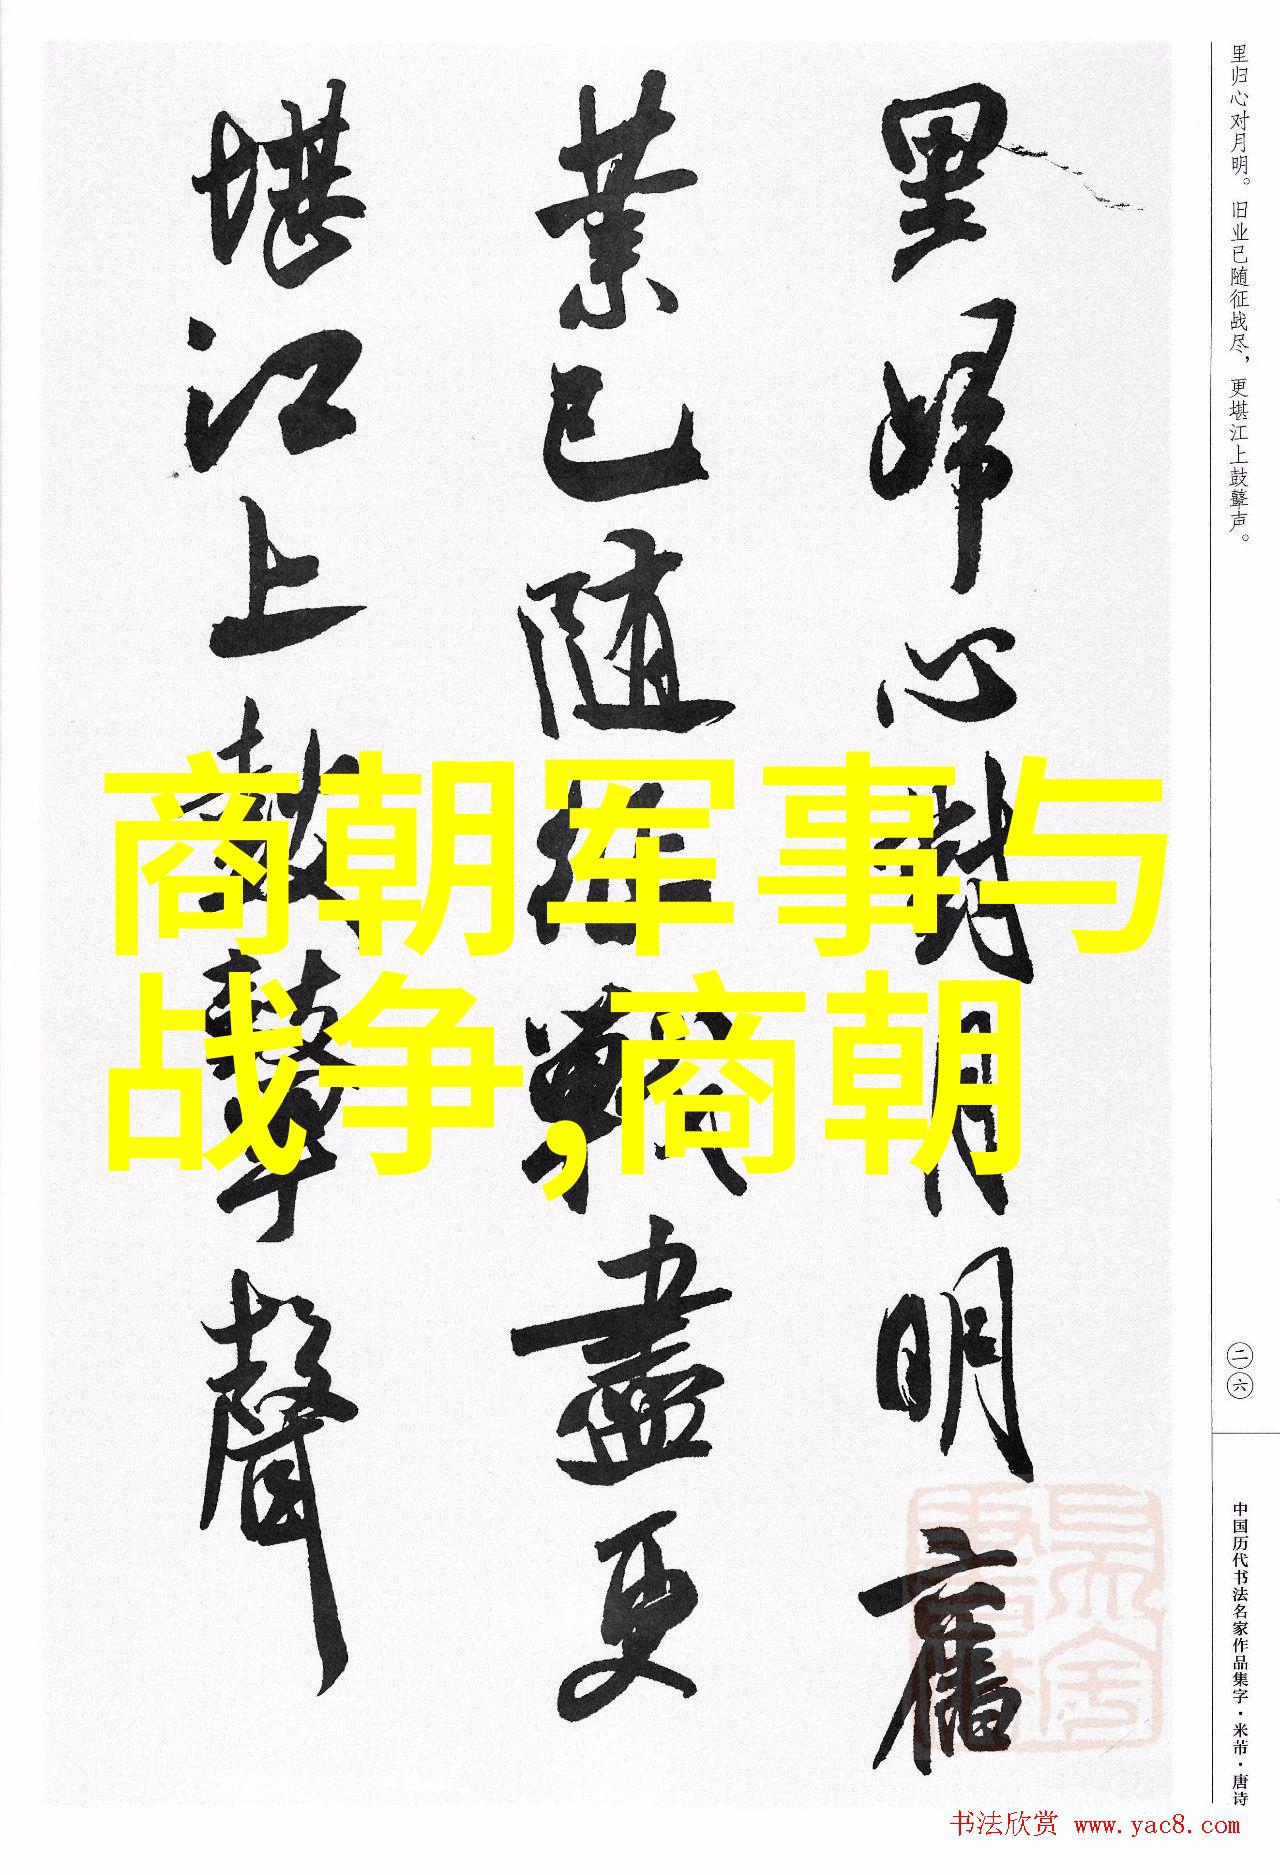 里归心对月明。旧业已随征战尽，更堪江上鼓鼙声。
里歸心對月明舊
業已随征戰盡更
堪江上鼓鼙聲
商朝军事与
战争,商朝
二六
中国历代书法名家作品集字·米芾·唐诗
书法欣赏 www.yac8.com